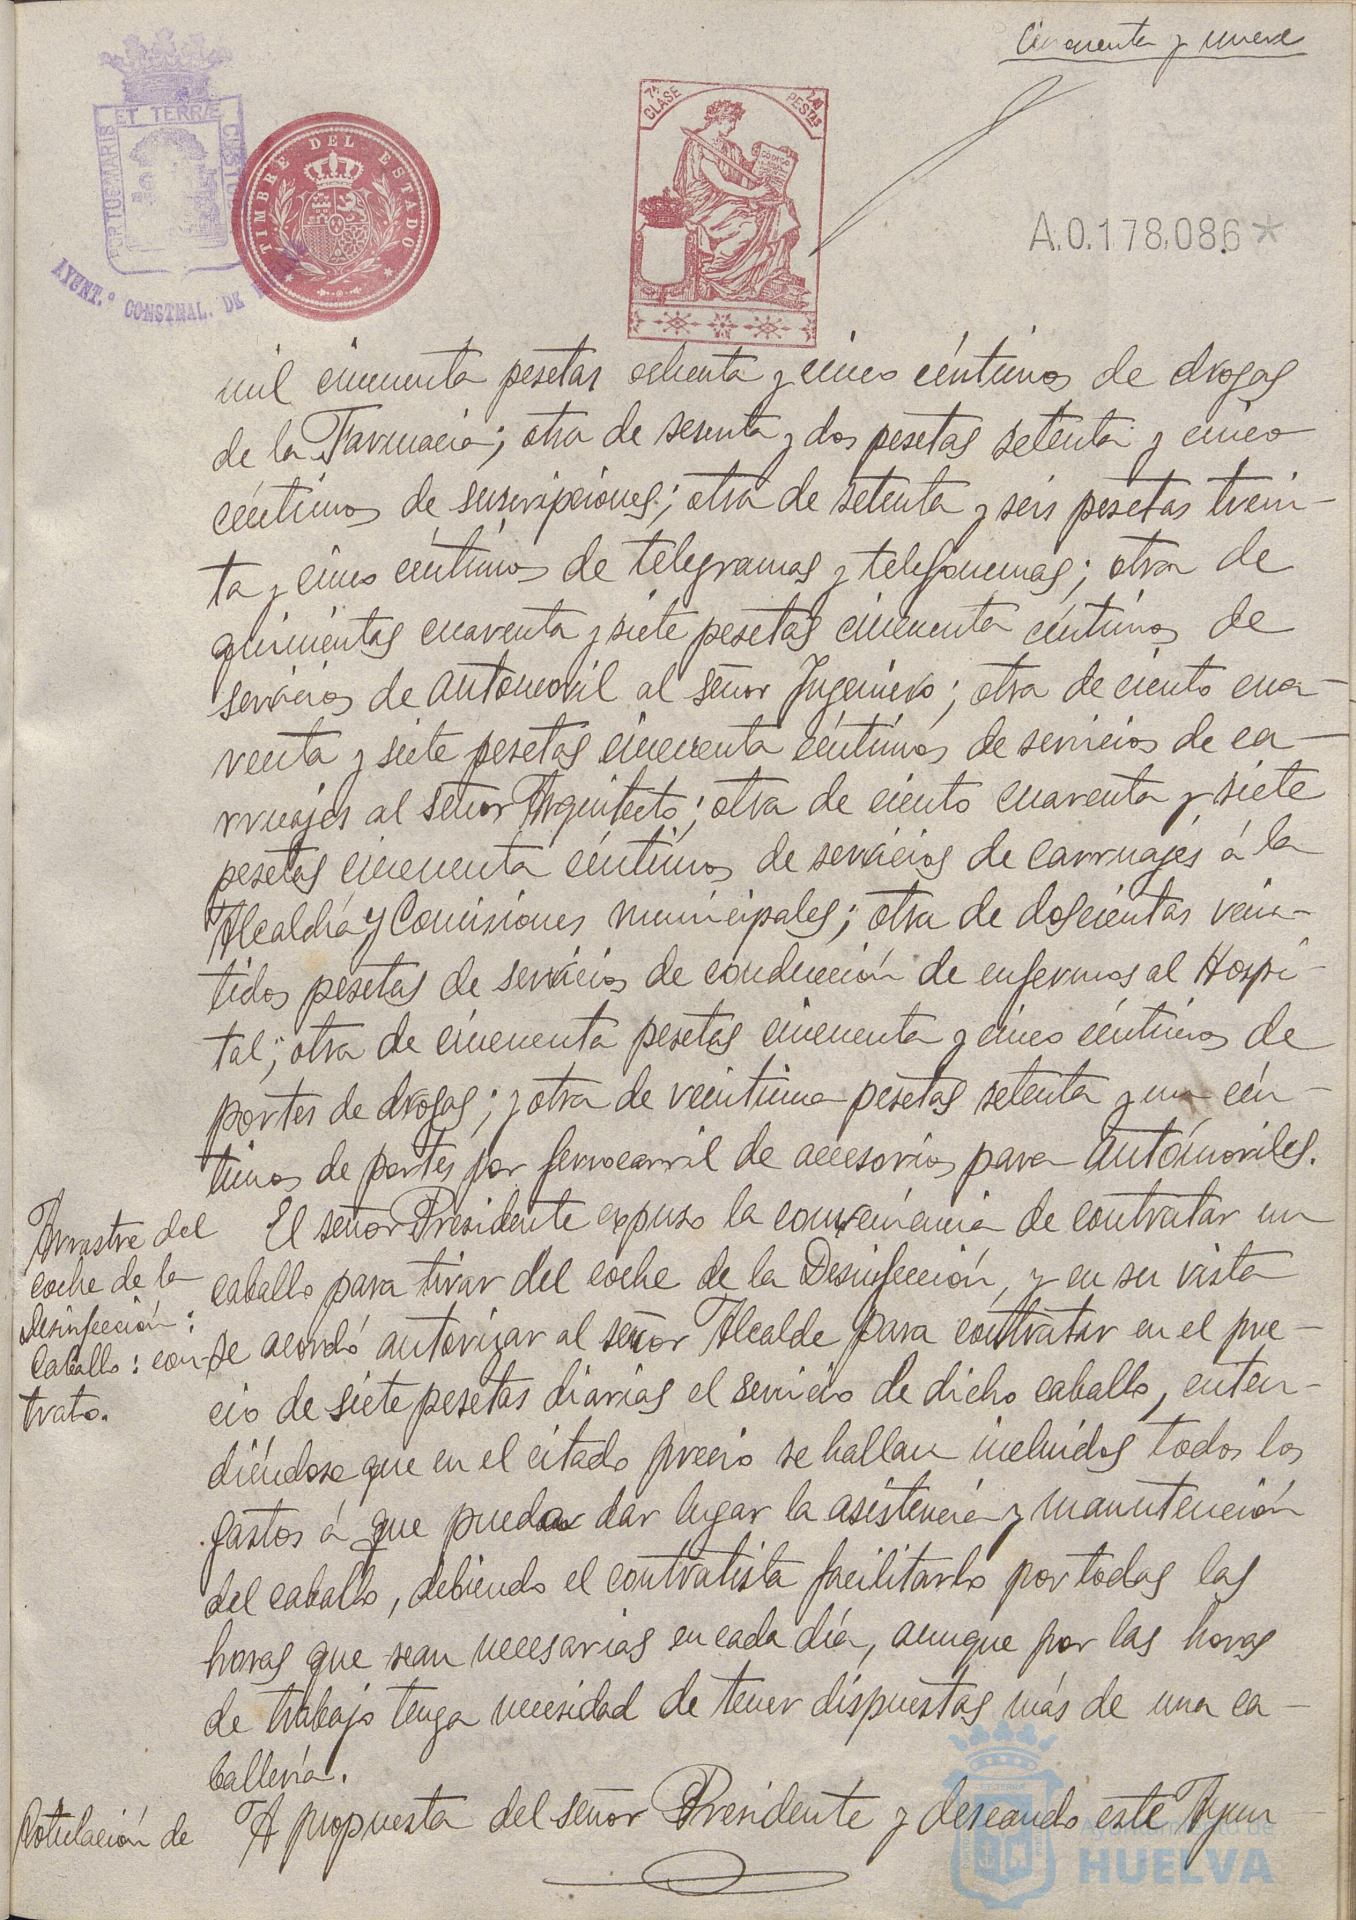 Cincuenta y nueve
PORTUS MARIS ET TERRÆ CUSTODIA
AYUNT.º CONSTNAL. DE
TIMBRE DEL ESTADO
7ª CLASE
PESTAS
CODIGO
A.0.178.086*
mil cincuenta pesetas ochenta y cinco céntimos de drogas
de la Farmacia; otra de sesenta y dos pesetas setenta y cinco
céntimos de suscripciones; otra de setenta y seis pesetas trein-
ta y cinco céntimos de telegramas y telefonemas; otra de
quinientas cuarenta y siete pesetas cincuenta céntimos de
servicios de automovil al señor Ingeniero; otra de ciento cua-
renta y siete pesetas cincuenta céntimos de servicios de ca-
rruajes al señor Arquitecto; otra de ciento cuarenta y siete
pesetas cincuenta céntimos de servicios de carruajes á la
Alcaldía y Comisiones municipales; otra de doscientas vein-
tidos pesetas de servicios de conducción de enfermos al Hospi-
tal; otra de cincuenta pesetas cincuenta y cinco céntimos de
portes de drogas; y otra de veintiuna pesetas setenta y un cén-
timos de portes por ferrocarril de accesorios para automoviles.
Arrastre del
coche de la
Desinfección:
Caballo: con-
trato.
El señor Presidente expuso la conveniencia de contratar un
caballo para tirar del coche de la Desinfección, y en su vista
se acordó autorizar al señor Alcalde para contratar en el pre-
cio de siete pesetas diarias el servicio de dicho caballo, enten-
diéndose que en el citado precio se hallan incluidos todos los
gastos á que puedan dar lugar la asistencia y manutención
del caballo, debiendo el contratista facilitarlo por todas las
horas que sean necesarias en cada día, aunque por las horas
de trabajo tenga necesidad de tener dispuestas más de una ca-
ballería.
Rotulación de
A propuesta del señor Presidente y deseando este Ayun-
Ayuntamiento de
HUELVA